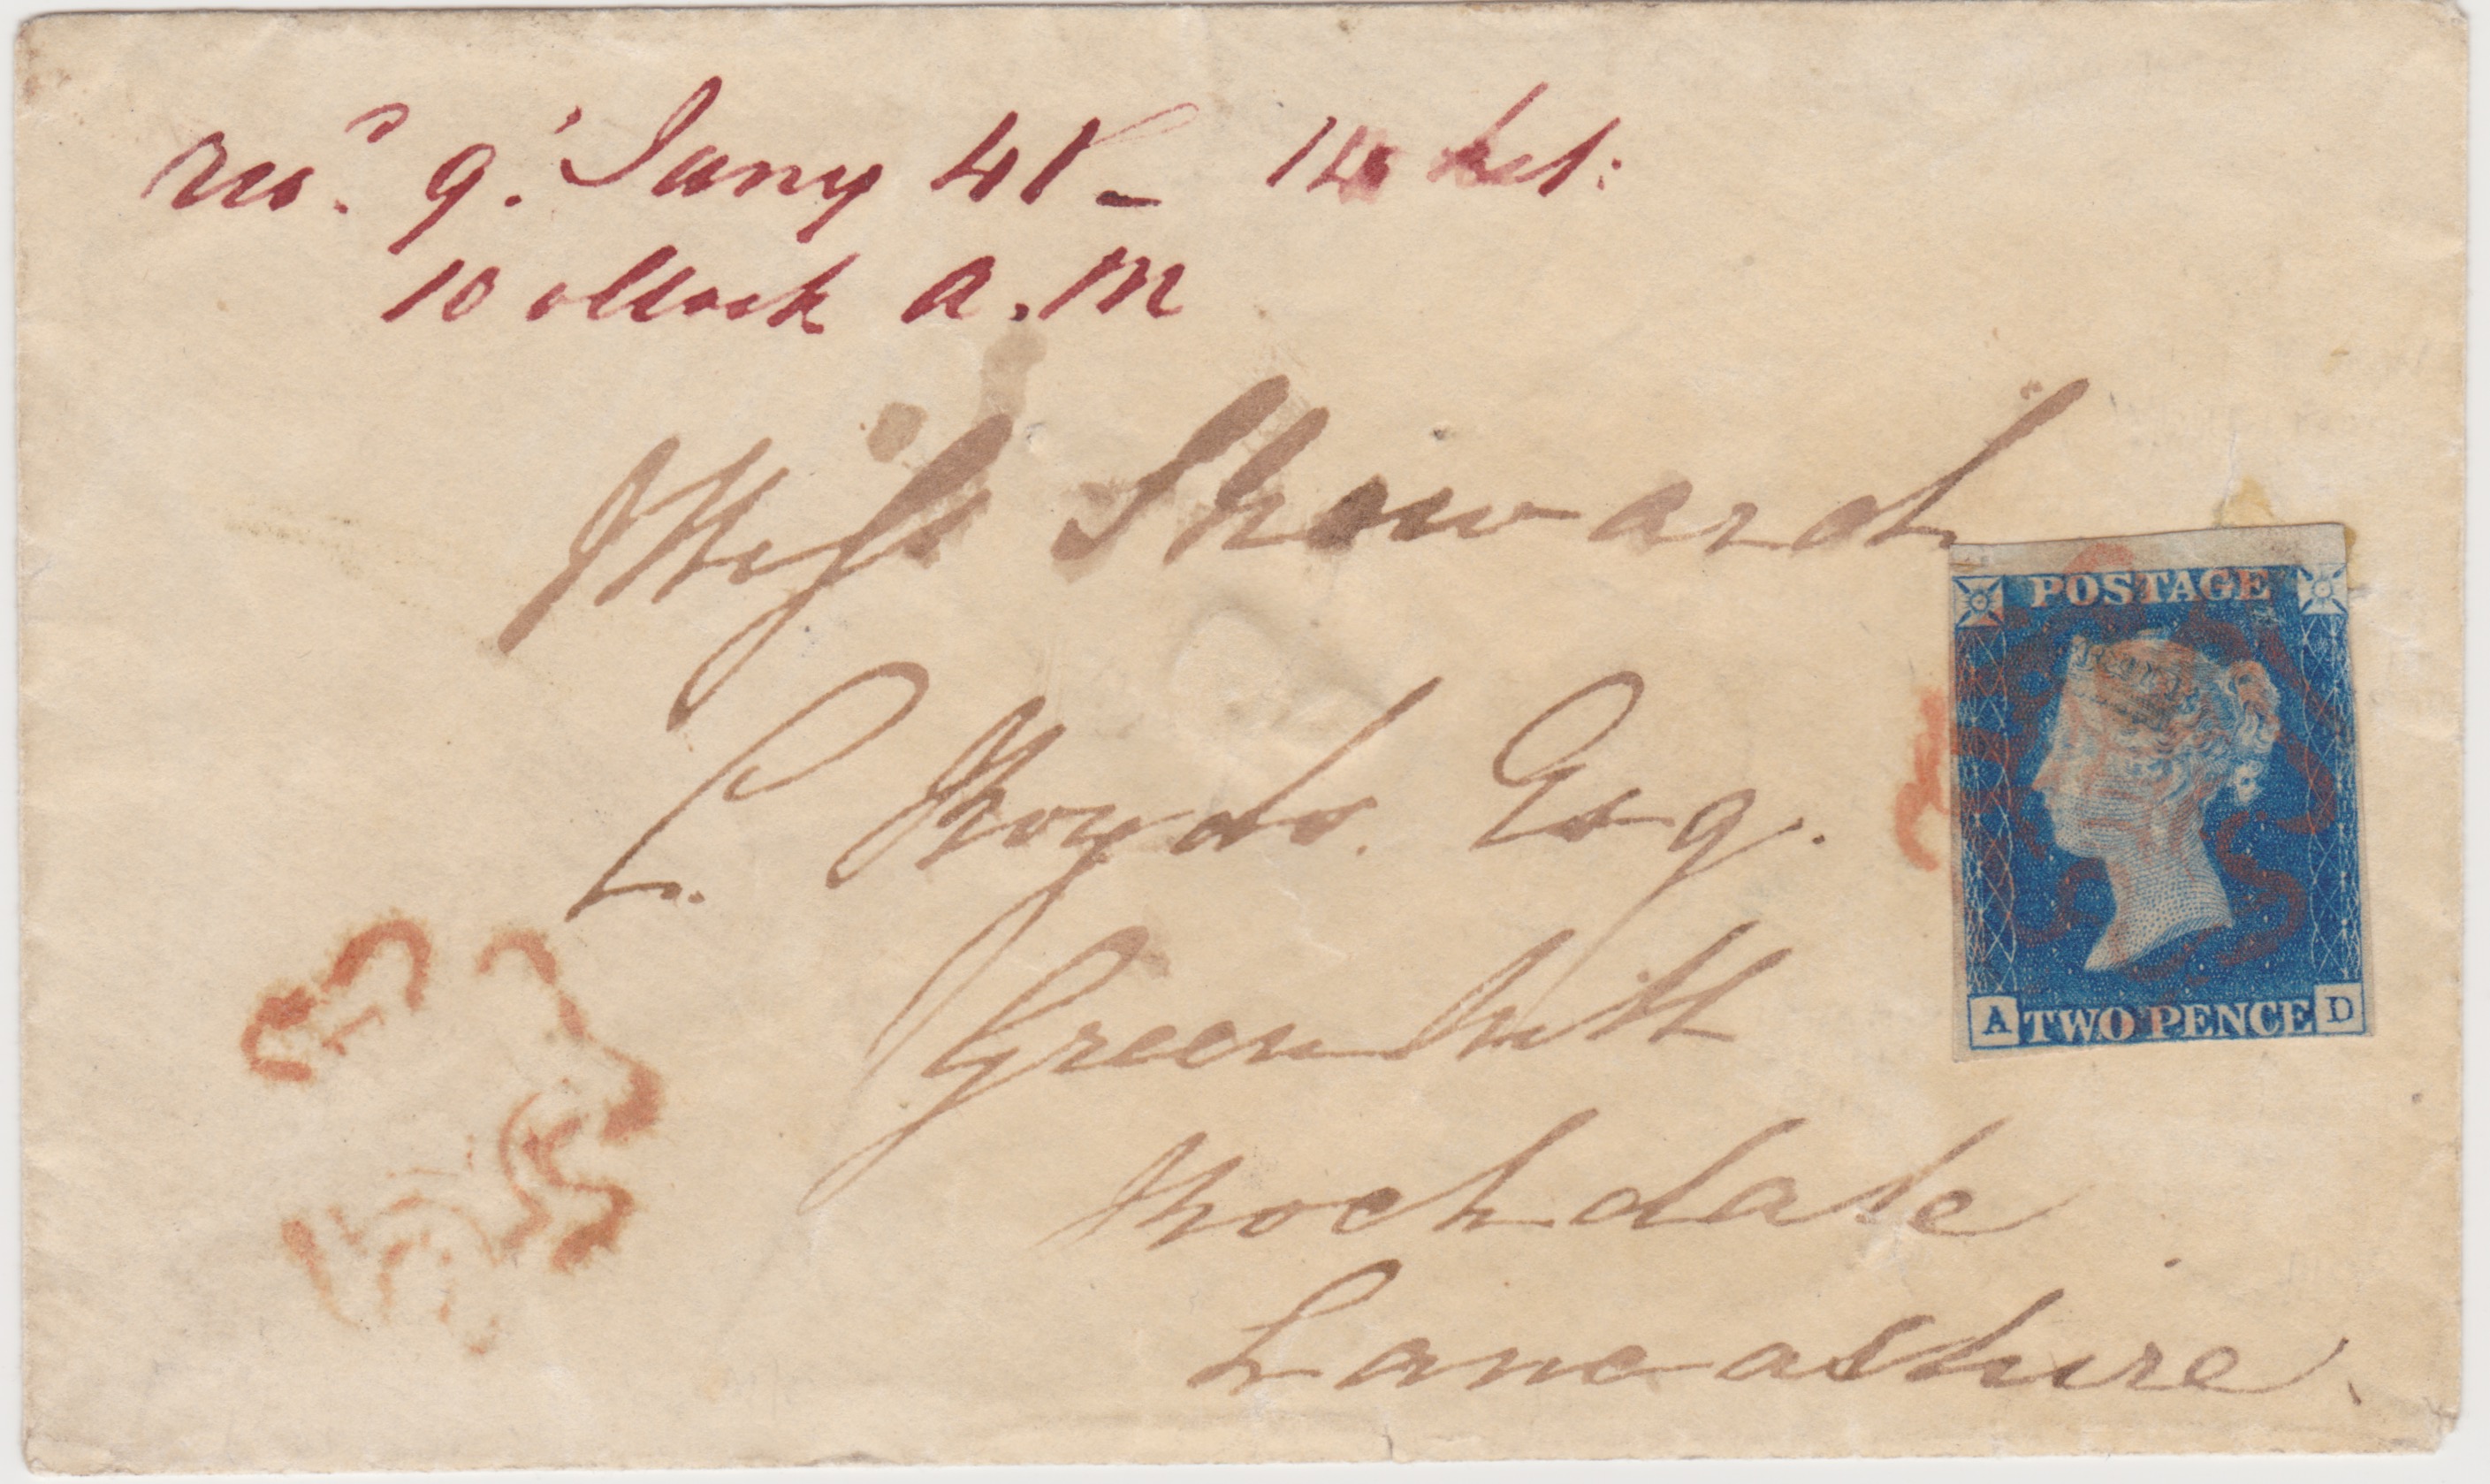 recd. 9. Jany 41 - 14 Let:
10 oClock A.M
Miss Showard
C. Royds. Esq.
Green Hill
Rochdale
Lancashire
POSTAGE
A TWO PENCE D